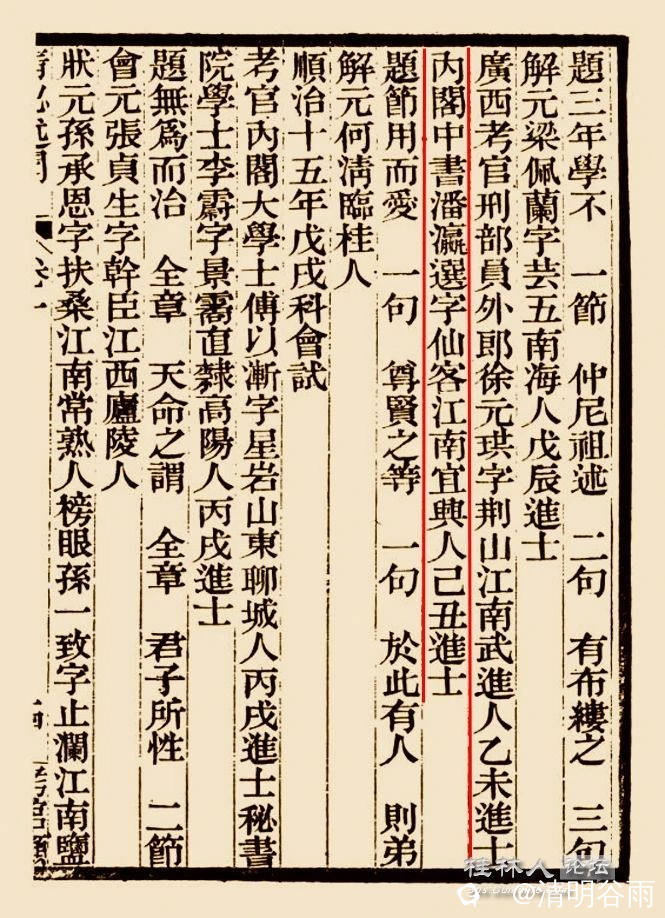 題三年學不　一節　仲尼祖述　二句　有布縷之　三句
解元梁佩蘭字芸五南海人戊辰進士
廣西考官刑部員外郎徐元珙字荆山江南武進人乙未進士
內閣中書潘瀛選字仙客江南宜興人己丑進士
題節用而愛　一句　尊賢之等　一句　於此有人　則弟
解元何淸臨桂人
順治十五年戊戌科會試
考官內閣大學士傅以漸字星岩山東聊城人丙戌進士秘書
院學士李霨字景霱直隸高陽人丙戌進士
題無爲而治　全章　天命之謂　全章　君子所性　二節
會元張貞生字幹臣江西廬陵人
狀元孫承恩字扶桑江南常熟人榜眼孫一致字止瀾江南鹽
卷一
桂林人论坛
@清明谷雨